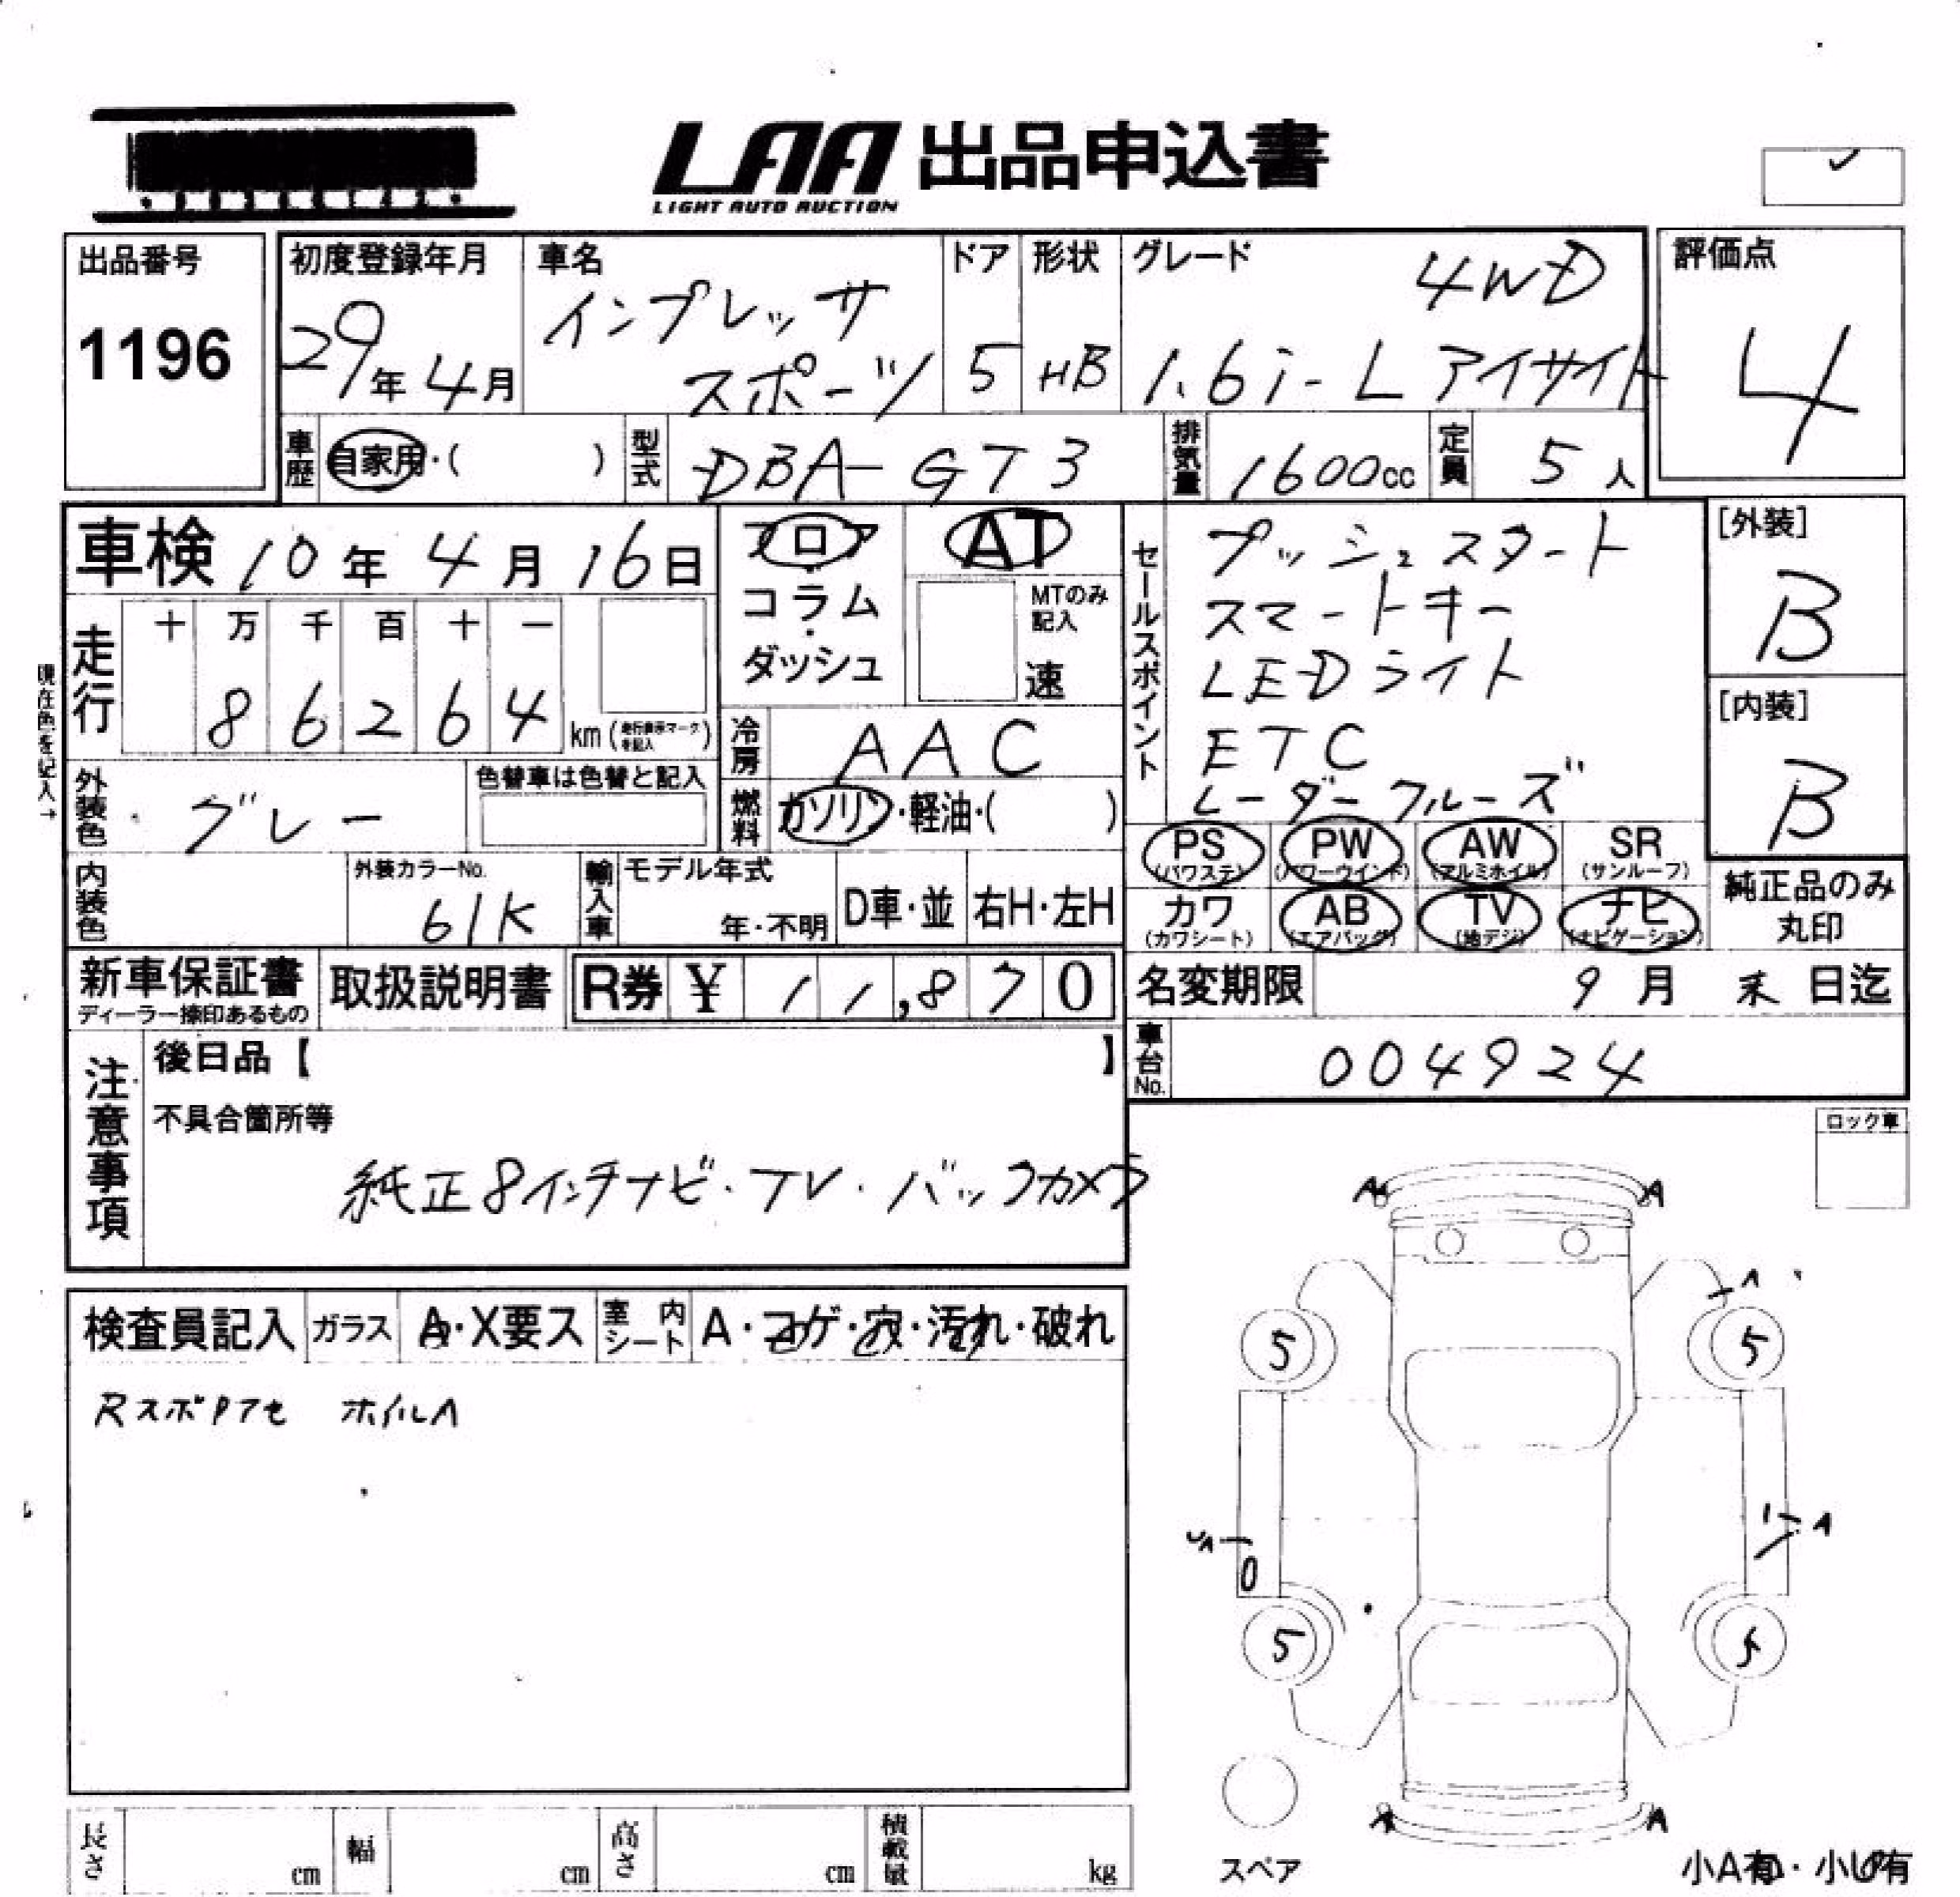 LAA 出品申込書
LIGHT AUTO AUCTION
出品番号
1196
初度登録年月
29年 4月
車名
インプレッサ
スポーツ
ドア
5
形状
HB
グレード
4WD
1.6i-L アイサイト
評価点
4
車歴 自家用・( )
型式 DBA-GT3
排気量 1600cc
定員 5人
車検 10年 4月 16日
走行 十 万 千 百 十 一
8 6 2 6 4 km (走行表示マークを記入)
現在色を記入→
外装色 グレー
色替車は色替と記入
内装色
外装カラーNo.
61K
フロア
コラム
ダッシュ
AT
MTのみ記入
速
冷房 AAC
燃料 ガソリン・軽油・( )
輸入車 モデル年式
年・不明
D車・並
右H・左H
セールスポイント
プッシュスタート
スマートキー
LEDライト
ETC
レーダークルーズ
[外装]
B
[内装]
B
PS (パワステ)
PW (パワーウインド)
AW (アルミホイル)
SR (サンルーフ)
カワ (カワシート)
AB (エアバッグ)
TV (地デジ)
ナビ (ナビゲーション)
純正品のみ
丸印
新車保証書
ディーラー捺印あるもの
取扱説明書
R券 ¥ 11,870
名変期限 9月 末日迄
車台No. 004924
注意事項
後日品【 】
不具合箇所等
純正8インチナビ・TV・バックカメラ
ロック車
検査員記入
ガラス A・X要ス
室内シート A・コゲ・穴・汚れ・破れ
ホイルA
A A
A
5 5
A
5 5
A A
スペア
小A有・小U有
長さ cm
幅 cm
高さ cm
積載量 kg